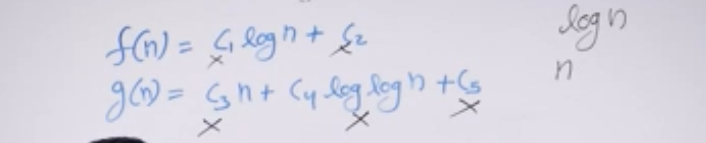 f(n) = C₁ log n + C₂
log n
g(n) = C₃ n + C₄ log log n + C₅
n